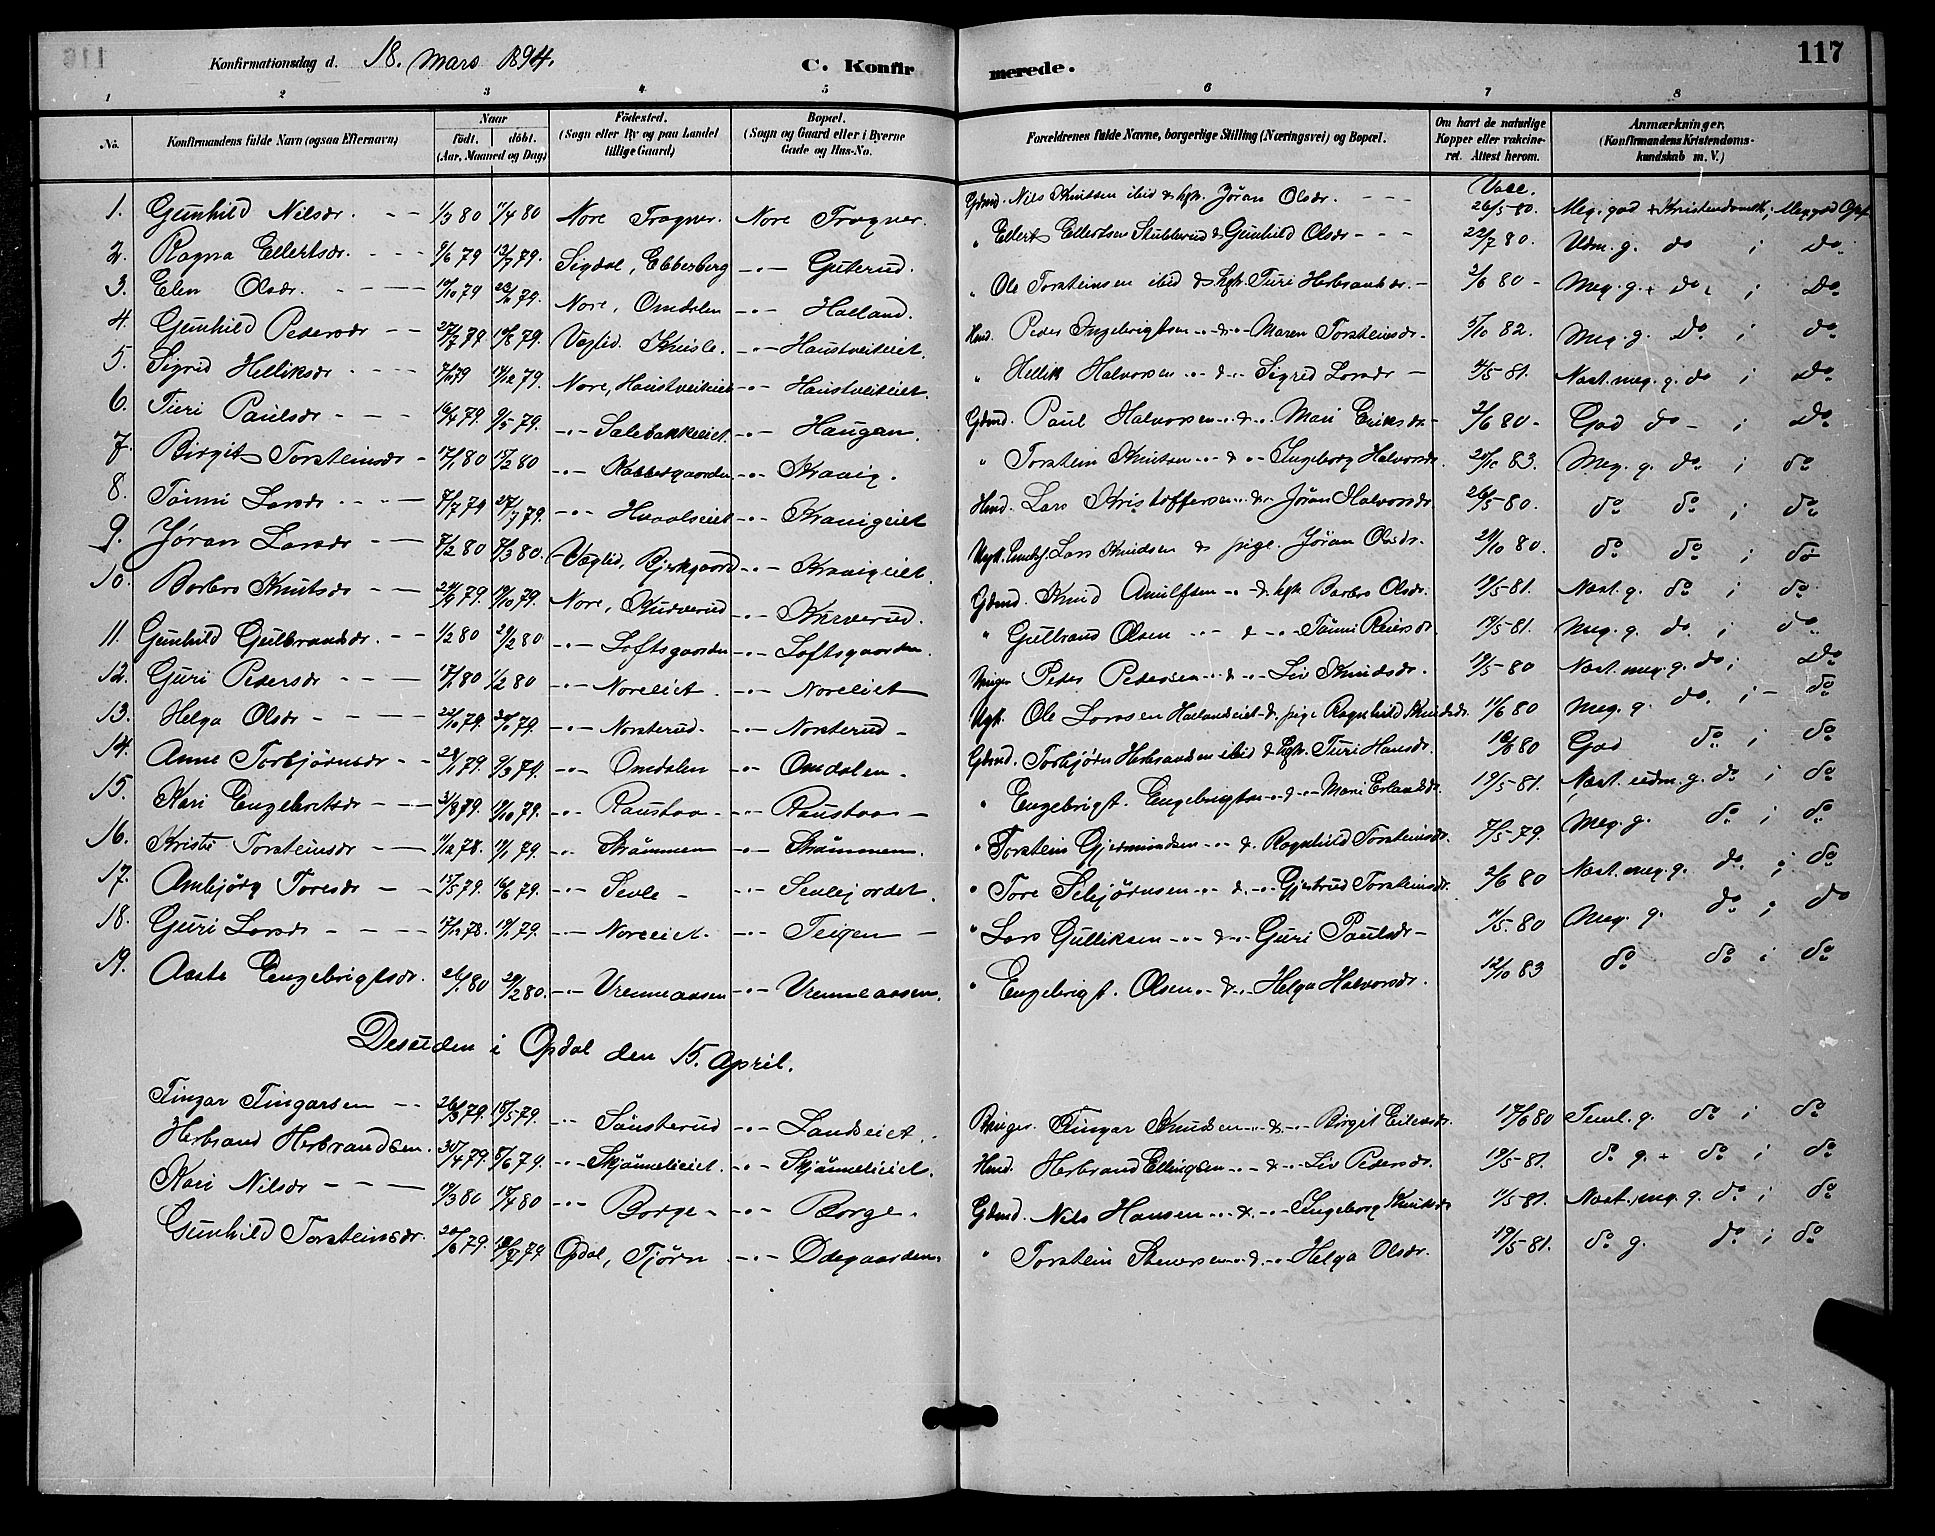 Konfirmationsdag d. 18. Mars 1894. C. Konfirmerede. 117
1 2 3 4 5 6 7 8
No. Konfirmandens fulde Navn (ogsaa Efternavn) Naar födt. döbt. (Aar, Maaned og Dag) Födested. (Sogn eller By og paa Landet tillige Gaard) Bopæl. (Sogn og Gaard eller i Byerne Gade og Hus-No. Forældrenes fulde Navne, borgerlige Stilling (Næringsvei) og Bopæl. Om havt de naturlige Kopper eller vakcineret. Attest herom. Anmærkninger. (Konfirmandens Kristendomskundskab m. V.)
1. Gunhild Nilsdr. 1/3 80 11/4 80 Nore Trogner. Nore Trogner. Gdmd. Nils Knutsen ibid & hstr. Jøran Olsdr. Vacc. 26/5 80. Meg. god
2. Ragna Ellertsdr. 9/6 79 13/7 79. Sigdal, Ebberberg -"- Guterud. " Ellert Ellertsen Stubberud & Gunhild Olsdr 22/7 80. Udm. g. do ; do
3. Elen Olsdr. Nore, Omdalen -"- Halland. " Ole Torsteinsen ibid & hstr. Turi Herbrandsdr. 2/6 80 Meg. g. do ; do
4. Gunhild Pedersdr 27/7 79 Veglid. -"- Haustveiteiet. Hmd. Peder Ingebrigtsen -"- & -"- Maren Torsteinsdr. 5/10 82. Meg. g. do ; do
5. Sigrid Helliksdr Nore, Haustveiteiet -"- Haustveiteiet. " Hellik Halvorsen -"- & -"- Sigrid Larsdr 81. Næst. meg. g. do ; do
6. Turi Paulsdr 9/5 79. -"- Salebakkeiet -"- Haugen. Gdmd. Paul Halvorsen -"- & -"- Mari Eriksdr 2/6 80 God do ; do
7. Birgit Torsteinsdr 17/1 80 17/2 80 -"- -"- Kravig. " Torstein Knutsen -"- & -"- Ingeborg Halvorsdr. 20/10 83. Meg. g. do ; do
8. Tönni Larsdr 7/7 79 27/7 79. -"- Hvaalseiet -"- Kravigeiet Hmd. Lars Kristoffersen -"- & -"- Jøran Halvorsdr 26/5 80. do do ; do
9. Jøran Larsdr 7/2 80 7/3 80. Veglid, -"- Kravigeiet. Lars Knudsen & pige Jøran Olsdr. 80. do do ; do
10. Barbro Knutsdr Nore, Kudverud -"- Kudverud. Gdmd. Knud Anulfsen -"- & hstr Barbro Olsdr. 19/5 81. Næst. g. do ; do
11. Gunhild Gulbrandsdr. 1/2 80 29/2 80 -"- Loftsgaarden -"- Loftsgaarden. " Gulbrand Olsen -"- & -"- Tönni Reiersdr. 19/5 81. Meg. g. do ; do
12. Guri Pedersdr 17/1 80 1/2 80 -"- Noreeiet -"- Noreeiet Peder Pedersen -"- & -"- Liv Knudsdr. 19/5 80 Næst. meg. g. do ; do
13. Helga Olsdr -"- Norsterud. -"- Norsterud Ole Larsen Hallandseiet & pige Ragnhild Knudsdr. 11/6 80 Meg. g. do ; do
14. Anne Torbjörnsdr 9/3 79. -"- Omdalen -"- Omdalen. Gdmd. Torbjörn Herbrandsen ibid & hstr. Turi Hansdr. God do ; do
15. Kari Engebretsdr 31/8 79. -"- Raustaa -"- Raustaa " Engebrigt Engebrigtsen -"- & -"- Mari Erlandsdr. 19/5 81. Næst. udm. g. do ; do
16. Kristi Torsteinsdr -"- -"- " Torstein Gjermundsen -"- & Ragnhild Torsteinsdr. 79. Meg. g. do ; do
17. Ambjörg Toresdr 15/5 79. -"- Sevle -"- Sevlejordet. " Tore Sebjörnsen -"- & -"- Gjertrud Torsteinsdr. 2/6 80 Næst. meg. g. do ; do
18. Guri Larsdr 17/12 78. -"- Noreeiet. -"- Teigen " Lars Gulliksen -"- & -"- Guri Paulsdr 80 Meg. g. do ; do
19. Aaste Engebrigtsdr. 26/1 80 29/2 80. -"- Vrenneaasen -"- Vrenneaasen. " Engebrigt Olsen -"- & -"- Helga Halvorsdr. 12/10 83 do do ; do
Desuden i Opdal den 15. April.
Fingar Fingarsen 26/3 79. 18/5 79. -"- Sönsterud -"- Landseiet. Fingar Knudsen -"- & -"- Birgit Eilevsdr. 17/6 80 Teml. g. do ; do
Herbrand Herbrandsen. 30/4 79. 8/6 79. -"- Skjönneeiet. -"- Skjönneeiet. Hmd. Herbrand Ellingsen -"- & -"- Liv Pedersdr. 19/5 81. do g. do ; do
Kari Nilsdr 19/3 80 -"- Borge -"- Borge. Gdmd. Nils Hansen -"- & -"- Ingeborg Knutsdr 81. Næst. meg. g. do ; do
Gunhild Torsteinsdr. 79. Opdal, Tjörn -"- Ödegaarden. " Torstein Steversen -"- & -"- Helga Olsdr. 19/5 81. do g. do ; do